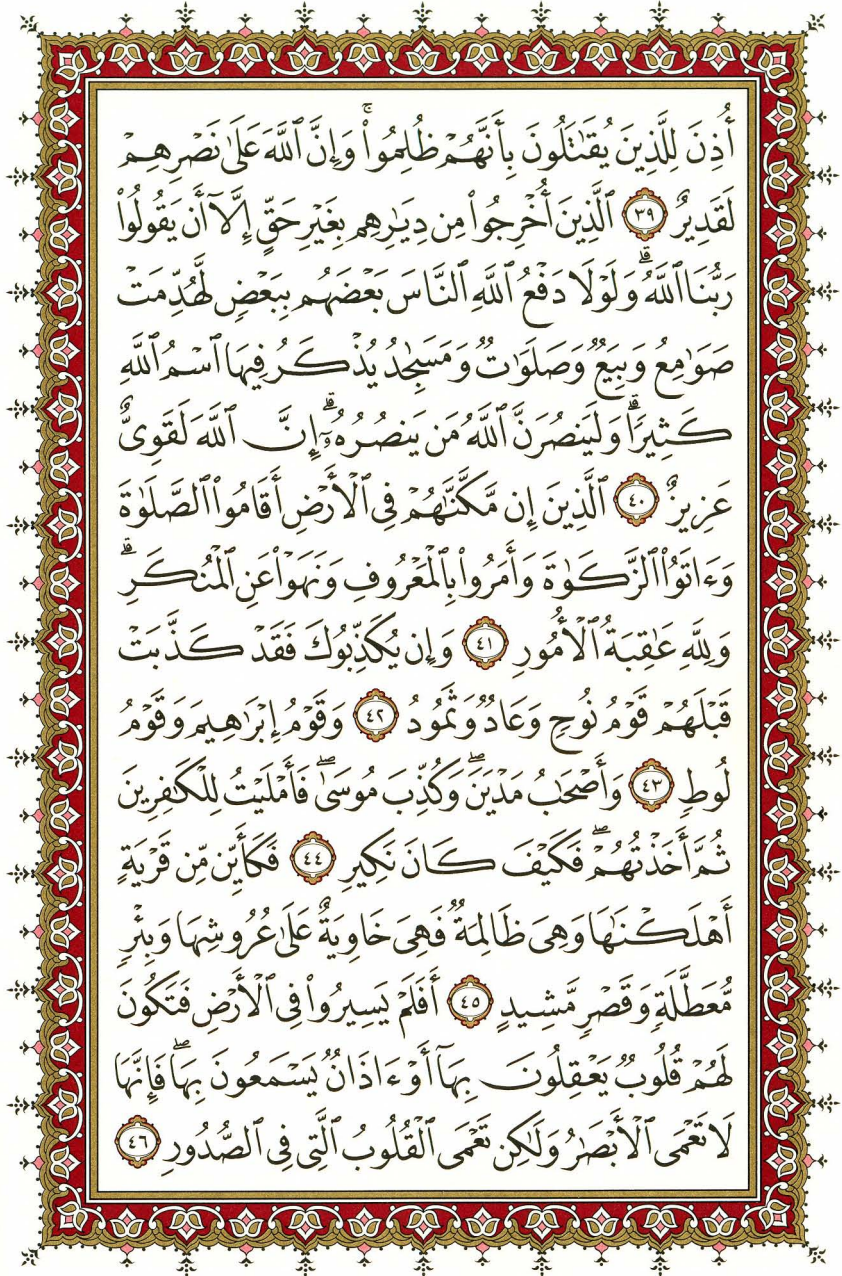 أُذِنَ لِلَّذِينَ يُقَٰتَلُونَ بِأَنَّهُمۡ ظُلِمُواْۚ وَإِنَّ ٱللَّهَ عَلَىٰ نَصۡرِهِمۡ
لَقَدِيرٌ ٣٩ ٱلَّذِينَ أُخۡرِجُواْ مِن دِيَٰرِهِم بِغَيۡرِ حَقٍّ إِلَّآ أَن يَقُولُواْ
رَبُّنَا ٱللَّهُۗ وَلَوۡلَا دَفۡعُ ٱللَّهِ ٱلنَّاسَ بَعۡضَهُم بِبَعۡضٖ لَّهُدِّمَتۡ
صَوَٰمِعُ وَبِيَعٞ وَصَلَوَٰتٞ وَمَسَٰجِدُ يُذۡكَرُ فِيهَا ٱسۡمُ ٱللَّهِ
كَثِيرٗاۗ وَلَيَنصُرَنَّ ٱللَّهُ مَن يَنصُرُهُۥٓۗ إِنَّ ٱللَّهَ لَقَوِيٌّ
عَزِيزٌ ٤٠ ٱلَّذِينَ إِن مَّكَّنَّٰهُمۡ فِي ٱلۡأَرۡضِ أَقَامُواْ ٱلصَّلَوٰةَ
وَءَاتَوُاْ ٱلزَّكَوٰةَ وَأَمَرُواْ بِٱلۡمَعۡرُوفِ وَنَهَوۡاْ عَنِ ٱلۡمُنكَرِۗ
وَلِلَّهِ عَٰقِبَةُ ٱلۡأُمُورِ ٤١ وَإِن يُكَذِّبُوكَ فَقَدۡ كَذَّبَتۡ
قَبۡلَهُمۡ قَوۡمُ نُوحٖ وَعَادٞ وَثَمُودُ ٤٢ وَقَوۡمُ إِبۡرَٰهِيمَ وَقَوۡمُ
لُوطٖ ٤٣ وَأَصۡحَٰبُ مَدۡيَنَۖ وَكُذِّبَ مُوسَىٰۖ فَأَمۡلَيۡتُ لِلۡكَٰفِرِينَ
ثُمَّ أَخَذۡتُهُمۡۖ فَكَيۡفَ كَانَ نَكِيرِ ٤٤ فَكَأَيِّن مِّن قَرۡيَةٍ
أَهۡلَكۡنَٰهَا وَهِيَ ظَالِمَةٞ فَهِيَ خَاوِيَةٌ عَلَىٰ عُرُوشِهَا وَبِئۡرٖ
مُّعَطَّلَةٖ وَقَصۡرٖ مَّشِيدٍ ٤٥ أَفَلَمۡ يَسِيرُواْ فِي ٱلۡأَرۡضِ فَتَكُونَ
لَهُمۡ قُلُوبٞ يَعۡقِلُونَ بِهَآ أَوۡ ءَاذَانٞ يَسۡمَعُونَ بِهَاۖ فَإِنَّهَا
لَا تَعۡمَى ٱلۡأَبۡصَٰرُ وَلَٰكِن تَعۡمَى ٱلۡقُلُوبُ ٱلَّتِي فِي ٱلصُّدُورِ ٤٦